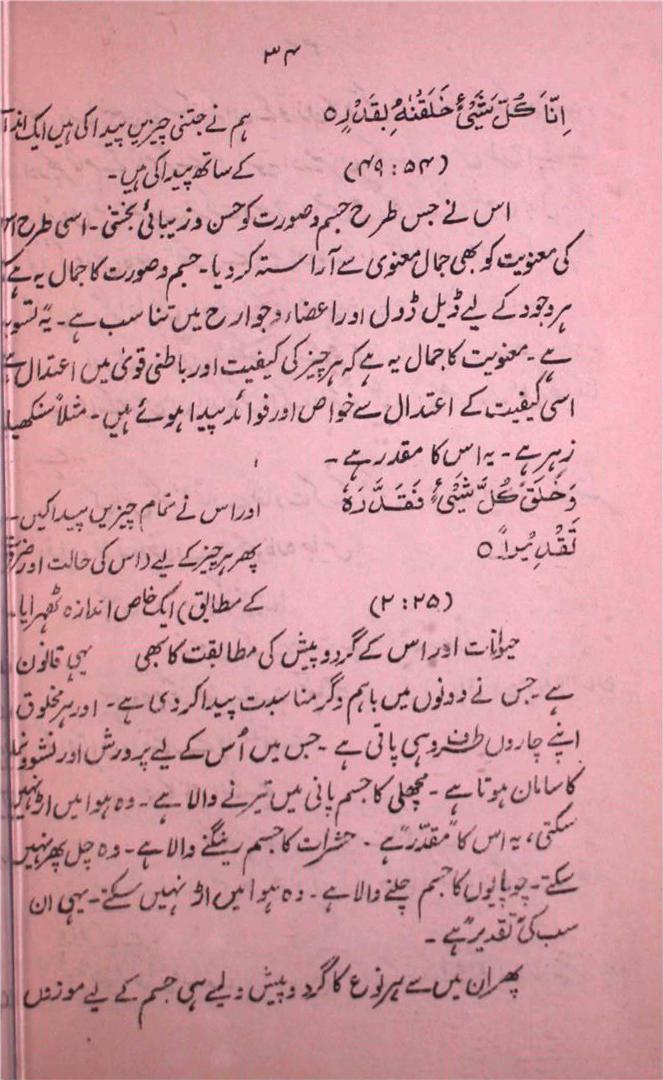 ۳۴
اِنَّا کُلَّ شَیْیءٍ خَلَقْنٰهُ بِقَدَرٍ ۵ ہم نے جتنی چیزیں پیدا کی ہیں ایک
(۵۴ : ۴۹) کے ساتھ پیدا کی ہیں۔
اس نے جس طرح جسم وصورت کو حسن وزیبائی بخشی۔ اسی طرح
کی معنویت کو بھی جمال معنوی سے آراستہ کر دیا۔ جسم وصورت کا جمال یہ ہے
ہر وجود کے لیے ڈیل ڈول اور اعضاء وجوارح میں تناسب ہے۔ یہ
ہے۔ معنویت کا جمال یہ ہے کہ ہر چیز کی کیفیت اور باطنی قویٰ میں اعتدال
اسی کیفیت کے اعتدال سے خواص اور فوائد پیدا ہوئے ہیں۔ مثلاً سنکھیا
زہر ہے۔ یہ اس کا مقدر ہے۔
وَخَلَقَ کُلَّ شَیْیءٍ فَقَدَّرَهٗ اور اس نے تمام چیزیں پیدا کیں۔
تَقْدِیْراً ۵ پھر ہر چیز کے لیے (اس کی حالت اور
(۲:۲۵) کے مطابق) ایک خاص اندازہ ٹھہرایا۔
حیوانات اور اس کے گردوپیش کی مطابقت کا بھی یہی قانون
ہے جس نے دونوں میں باہم وگر مناسبت پیدا کر دی ہے۔ اور ہر مخلوق
اپنے چاروں طرف وہی پاتی ہے۔ جس میں اُس کے لیے پرورش اور
کا سامان ہوتا ہے۔ مچھلی کا جسم پانی میں تیرنے والا ہے۔ وہ ہوا میں اڑ نہیں
سکتی، یہ اس کا "مقدّر" ہے۔ حشرات کا جسم رینگنے والا ہے۔ وہ چل پھر نہیں
سکتے۔ چوپایوں کا جسم چلنے والا ہے۔ وہ ہوا میں اڑ نہیں سکتے۔ یہی ان
سب کی "تقدیر" ہے۔
پھر ان میں سے ہر نوع کا گردوپیش ولیے ہی جسم کے لیے موزوں